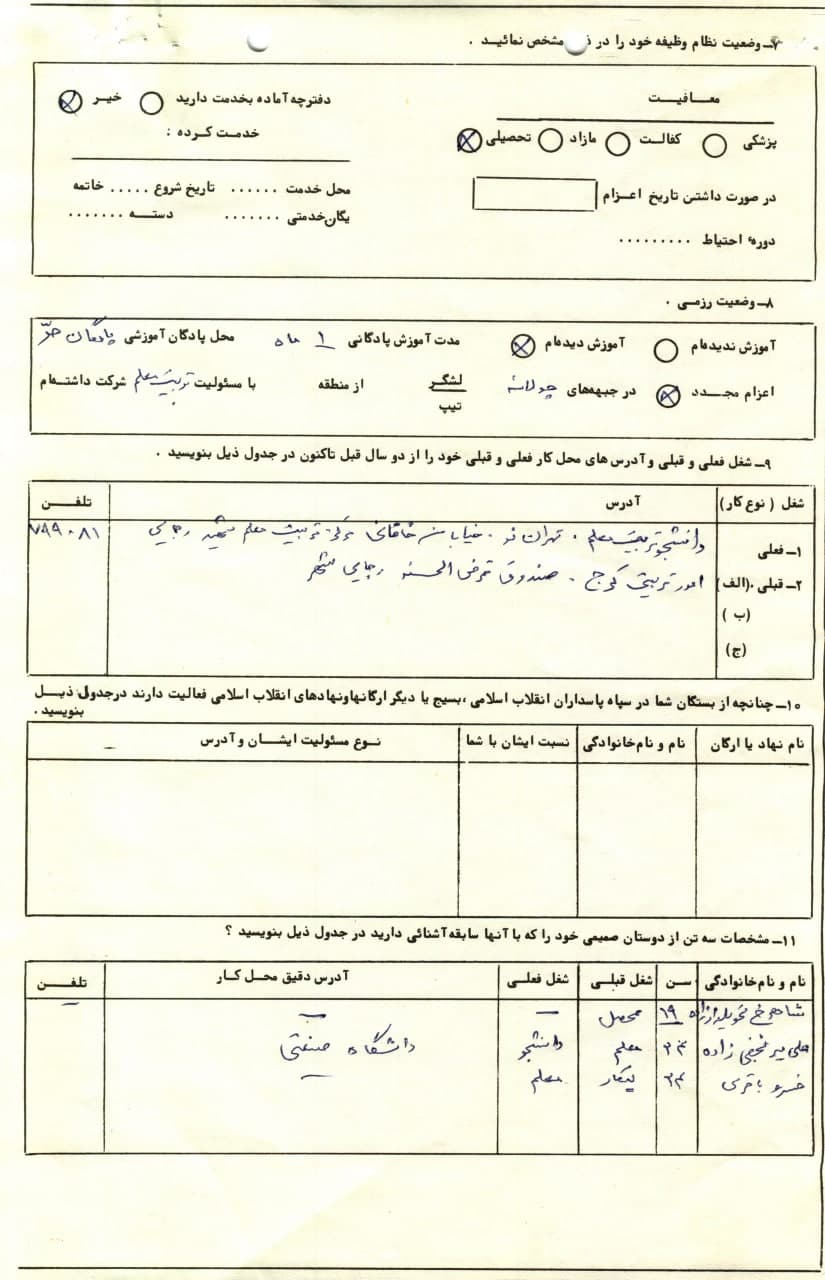 ۷ـ وضعیت نظام وظیفه خود را در مشخص نمائید .
معـافیـت
پزشکی کفالت مازاد تحصیلی
در صورت داشتن تاریخ اعـزام
دورهٔ احتیاط .........
دفترچه آماده بخدمت دارید خیـر
خدمت کـرده :
محل خدمت ...... تاریخ شروع ..... خاتمه
یگان‌خدمتی ....... دستـه .......
۸ـ وضعیت رزمـی .
آموزش ندیده‌ام آموزش دیده‌ام مدت آموزش پادگانی ۱ ماه محل پادگان آموزشی پادگان حرّ
اعزام مجـدد در جبهه‌های لشگـر تیپ از منطقه با مسئولیت تربیت معلم شرکت داشته‌ام
۹ـ شغل فعلی و قبلی و آدرس های محل کار فعلی و قبلی خود را از دو سال قبل تاکنون در جدول ذیل بنویسید .
شغل ( نوع کار) آدرس تلفـن
۱ـ فعلی دانشجو تربیت معلم . تهران نو . خیابان خاقانی مرکز تربیت معلم شهید رجایی ۷۸۹۰۸۱
۲ـ قبلی .(الف) امور تربیتی کرج . صندوق قرض الحسنه رجایی شهر
(ب )
(ج)
۱۰ـ چنانچه از بستگان شما در سپاه پاسداران انقلاب اسلامی ،بسیج یا دیگر ارگانهاونهادهای انقلاب اسلامی فعالیت دارند درجدول ذیـل
بنویسید .
نام نهاد یا ارگان نام و نام‌خانوادگی نسبت ایشان با شما نـوع مسئولیت ایشـان و آدرس
۱۱ـ مشخصات سه تن از دوستان صمیمی خود را که با آنها سابقه آشنائی دارید در جدول ذیل بنویسید ؟
نام و نام‌خانوادگی سـن شغل قبلـی شغل فعلـی آدرس دقیق محـل کـار تلفـن
شاهرخ تحویلدارزاده ۱۹ محصل — —
علی میر نجفی زاده ۲۴ معلم دانشجو دانشگاه صنعتی
خسرو باقری ۲۴ بیکار معلم —